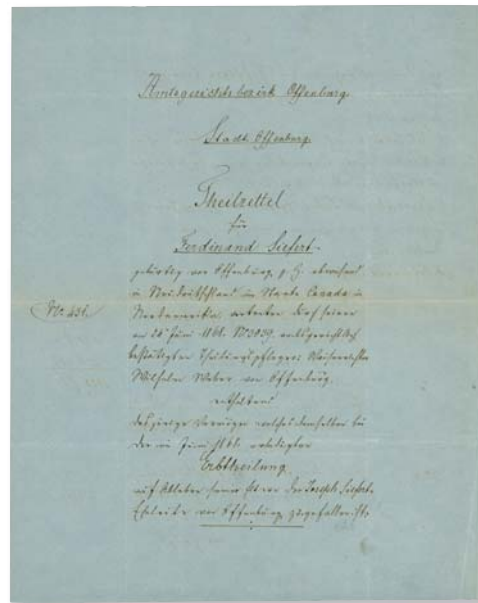 Amtsgerichtsbezirk Offenburg.
Stadt Offenburg.
Theilzettel
für
Ferdinand Siefert.
gebürtig von Offenburg, z. Z. abwesend
in Neudeutschland im Staate Canada in
Nordamerika, vertreten durch seinen
am 26 Juni 1868. No 3939. amtsgerichtlich
bestätigten Theilungspfleger: Waisenrichter
Wilhelm Weber von Offenburg.
enthaltend
dasjenige Vermögen welches demselben bei
der im Juni 1868. erledigten
Erbtheilung
auf Ableben seiner Eltern der Joseph Siefert
Eheleute von Offenburg, zugefallen ist.